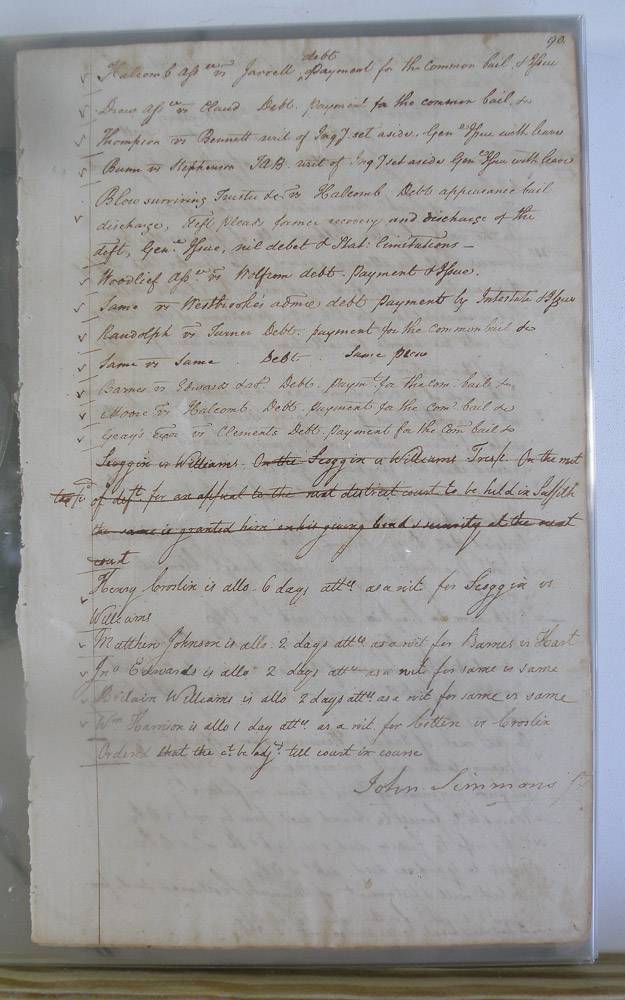 90
Halcomb ass ee vs Jarrell debt payment for the common bail & Issue
Drew ass ee vs Claud Debt. payment for the common bail &c
Thompson vs Bennett writ of Inqy set aside. Genl Issue with leave
Bunn vs Stephenson TAB. writ of Inqy set aside Genl Issue with leave
Blow surviving Trustee &c vs Halcomb Debt appearance bail
discharge, deft pleads former recovery and discharge of the
deft, Genl Issue, nil debet & Stat: limitations —
Woodlief ass ee vs Wolfrom debt. payment & Issue.
Same vs Westbrooke's admr debt payment by Intestate & Issue
Randolph vs Turner Debt. payment for the common bail &c
Same vs Same Debt Same plea
Barnes vs Edwards Debt. paymt for the com. bail &c
Moore vs Halcomb. Debt. payment for the comn bail &c
Gray's exor vs Clements Debt. payment for the Comn bail &c
Scoggin vs Williams. On the Scoggin vs Williams Tresp. On the mot
of deft for an appeal to the next district court to be held in Suffolk
the same is granted him on his giving bond & security at the next
court
Henry Croslin is allo. 6 days atte as a wit for Scoggin vs
Williams
Matthew Johnson is allo. 2 days atte as a wit for Barnes vs Hart
Jno Edwards is allo 2 days atte as a wit for same vs same
Britain Williams is allo 2 days atte as a wit for same vs same
Wm Harrison is allo 1 day atte as a wit. for Cotten vs Croslin
Ordered that the ct be adjd till court in course
John Simmons